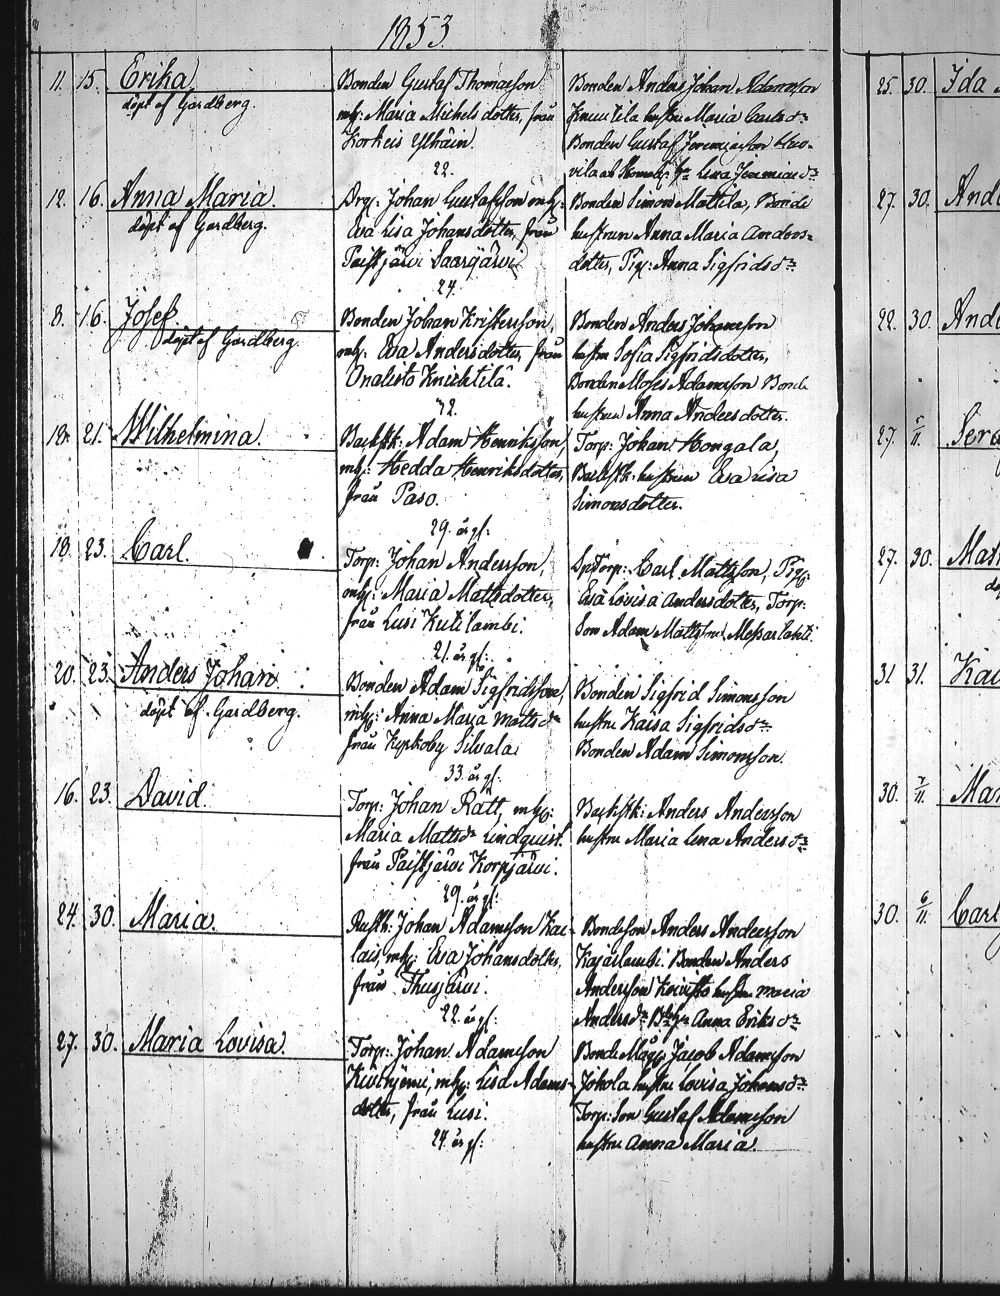 1853
11. 15. Erika
döpt af Gardberg.
Bonden Gustaf Thomasson
mhg: Maria Michels dotter, från
Korkeis
22.
Bonden Anders Johan Adamsson
hustru Maria Carls dr
Bonden Gustaf Jeremiasson
Lisa Jeremias dr
12. 16. Anna Maria
döpt af Gardberg.
Drg: Johan Gustafsson mhg:
Eva Lisa Johansdotter, från
Paistjärvi Saarijärvi
24.
Bonden Simon Mattila, Bonde
hustrun Anna Maria Anders-
dotter, Pig: Anna Sigfrids dr
8. 16. Josef
döpt af Gardberg.
Bonden Johan Kristersson,
mhg: Eva Andersdotter, från
Onalisto Knichtilä.
42.
Bonden Anders Johansson
hustru Sofia Sigfridsdotter,
Bonden Moses Adamsson Bonde
hustrun Anna Andersdotter.
18. 21. Wilhelmina.
Backstk: Adam Henriksson,
mhg: Hedda Henriksdotter,
från Paso.
29. år gl:
Torp: Johan Hongala,
Backstk: hustrun Eva Lisa
Simonsdotter.
18. 23. Carl.
Torp: Johan Andersson,
mhg: Maria Mattsdotter,
från Lusi Kutilambi.
21. år gl:
Carl Mattsson, Pig:
Eva Lovisa Andersdotter, Torp:
Son Adam Mattsson
20. 23. Anders Johan
döpt af Gardberg.
Bonden Adam Sigfridsson,
mhg: Anna Maria Matts dr
från Kyrkoby Silvala.
33. år gl.
Bonden Sigfrid Simonsson
hustru Kaisa Sigfrids dr
Bonden Adam Simonsson.
16. 23. David.
Torp: Johan Rätt, mhg:
Maria Matts dr Lindquist.
från Paistjärvi Korpjärvi.
29. år gl:
Backstk: Anders Andersson
hustru Maria Lena Anders dr
24. 30. Maria.
Rusth: Johan Adamsson Kai-
lais, mhg: Eva Johansdotter,
från Thusjärvi.
22. år gl:
Bondeson Anders Andersson
Kajaslambi. Bonden Anders
Andersson Koivisto hustru Maria
Anders dr Anna Eriks dr
27. 30. Maria Lovisa.
Torp: Johan Adamsson
mhg: Lisa Adams-
dotter, från Lusi.
24. år gl:
Bonde Måg: Jacob Adamsson
Jokola hustru Lovisa Johans dr
Torp: Son Gustaf Adamsson
hustru Anna Maria.
25. 30. Ida
27. 30.
22. 30.
27. 5/11.
27. 30.
31 31.
30. 7/11.
30. 6/11. Carl